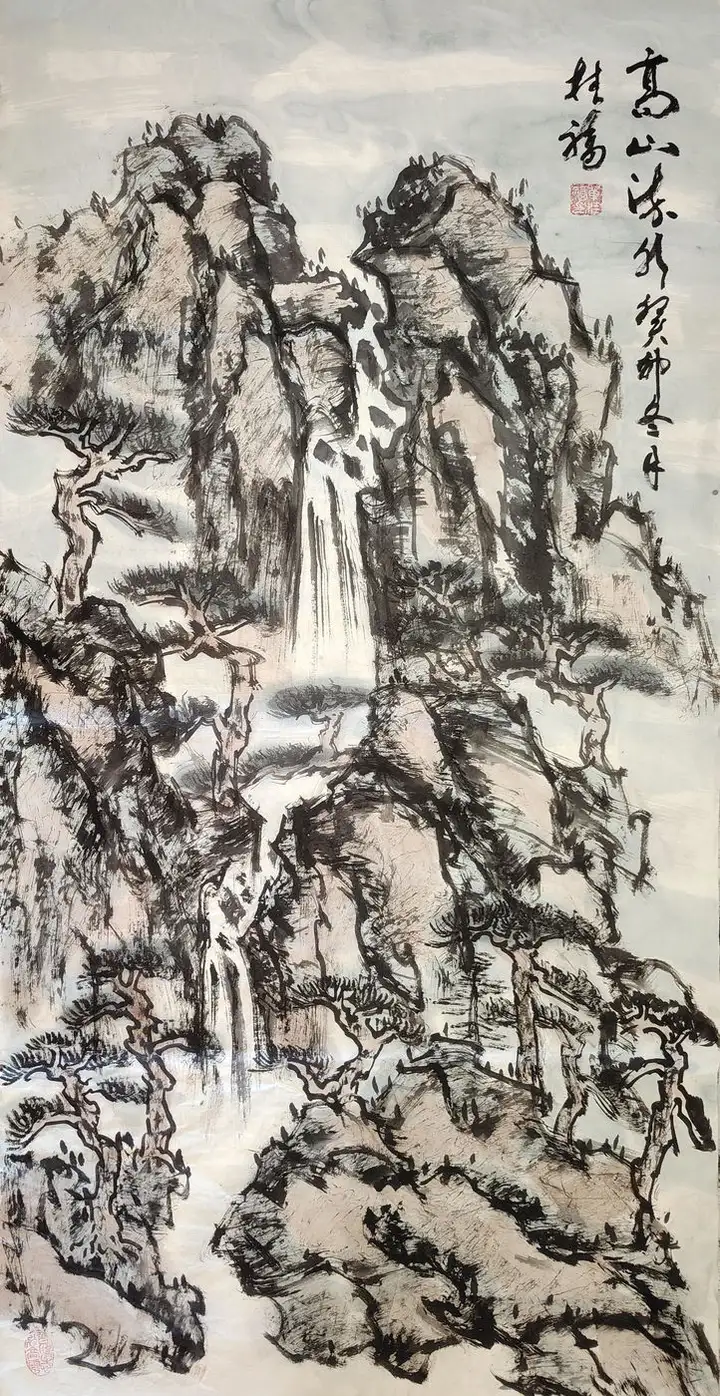 高山流水癸卯冬月
桂福